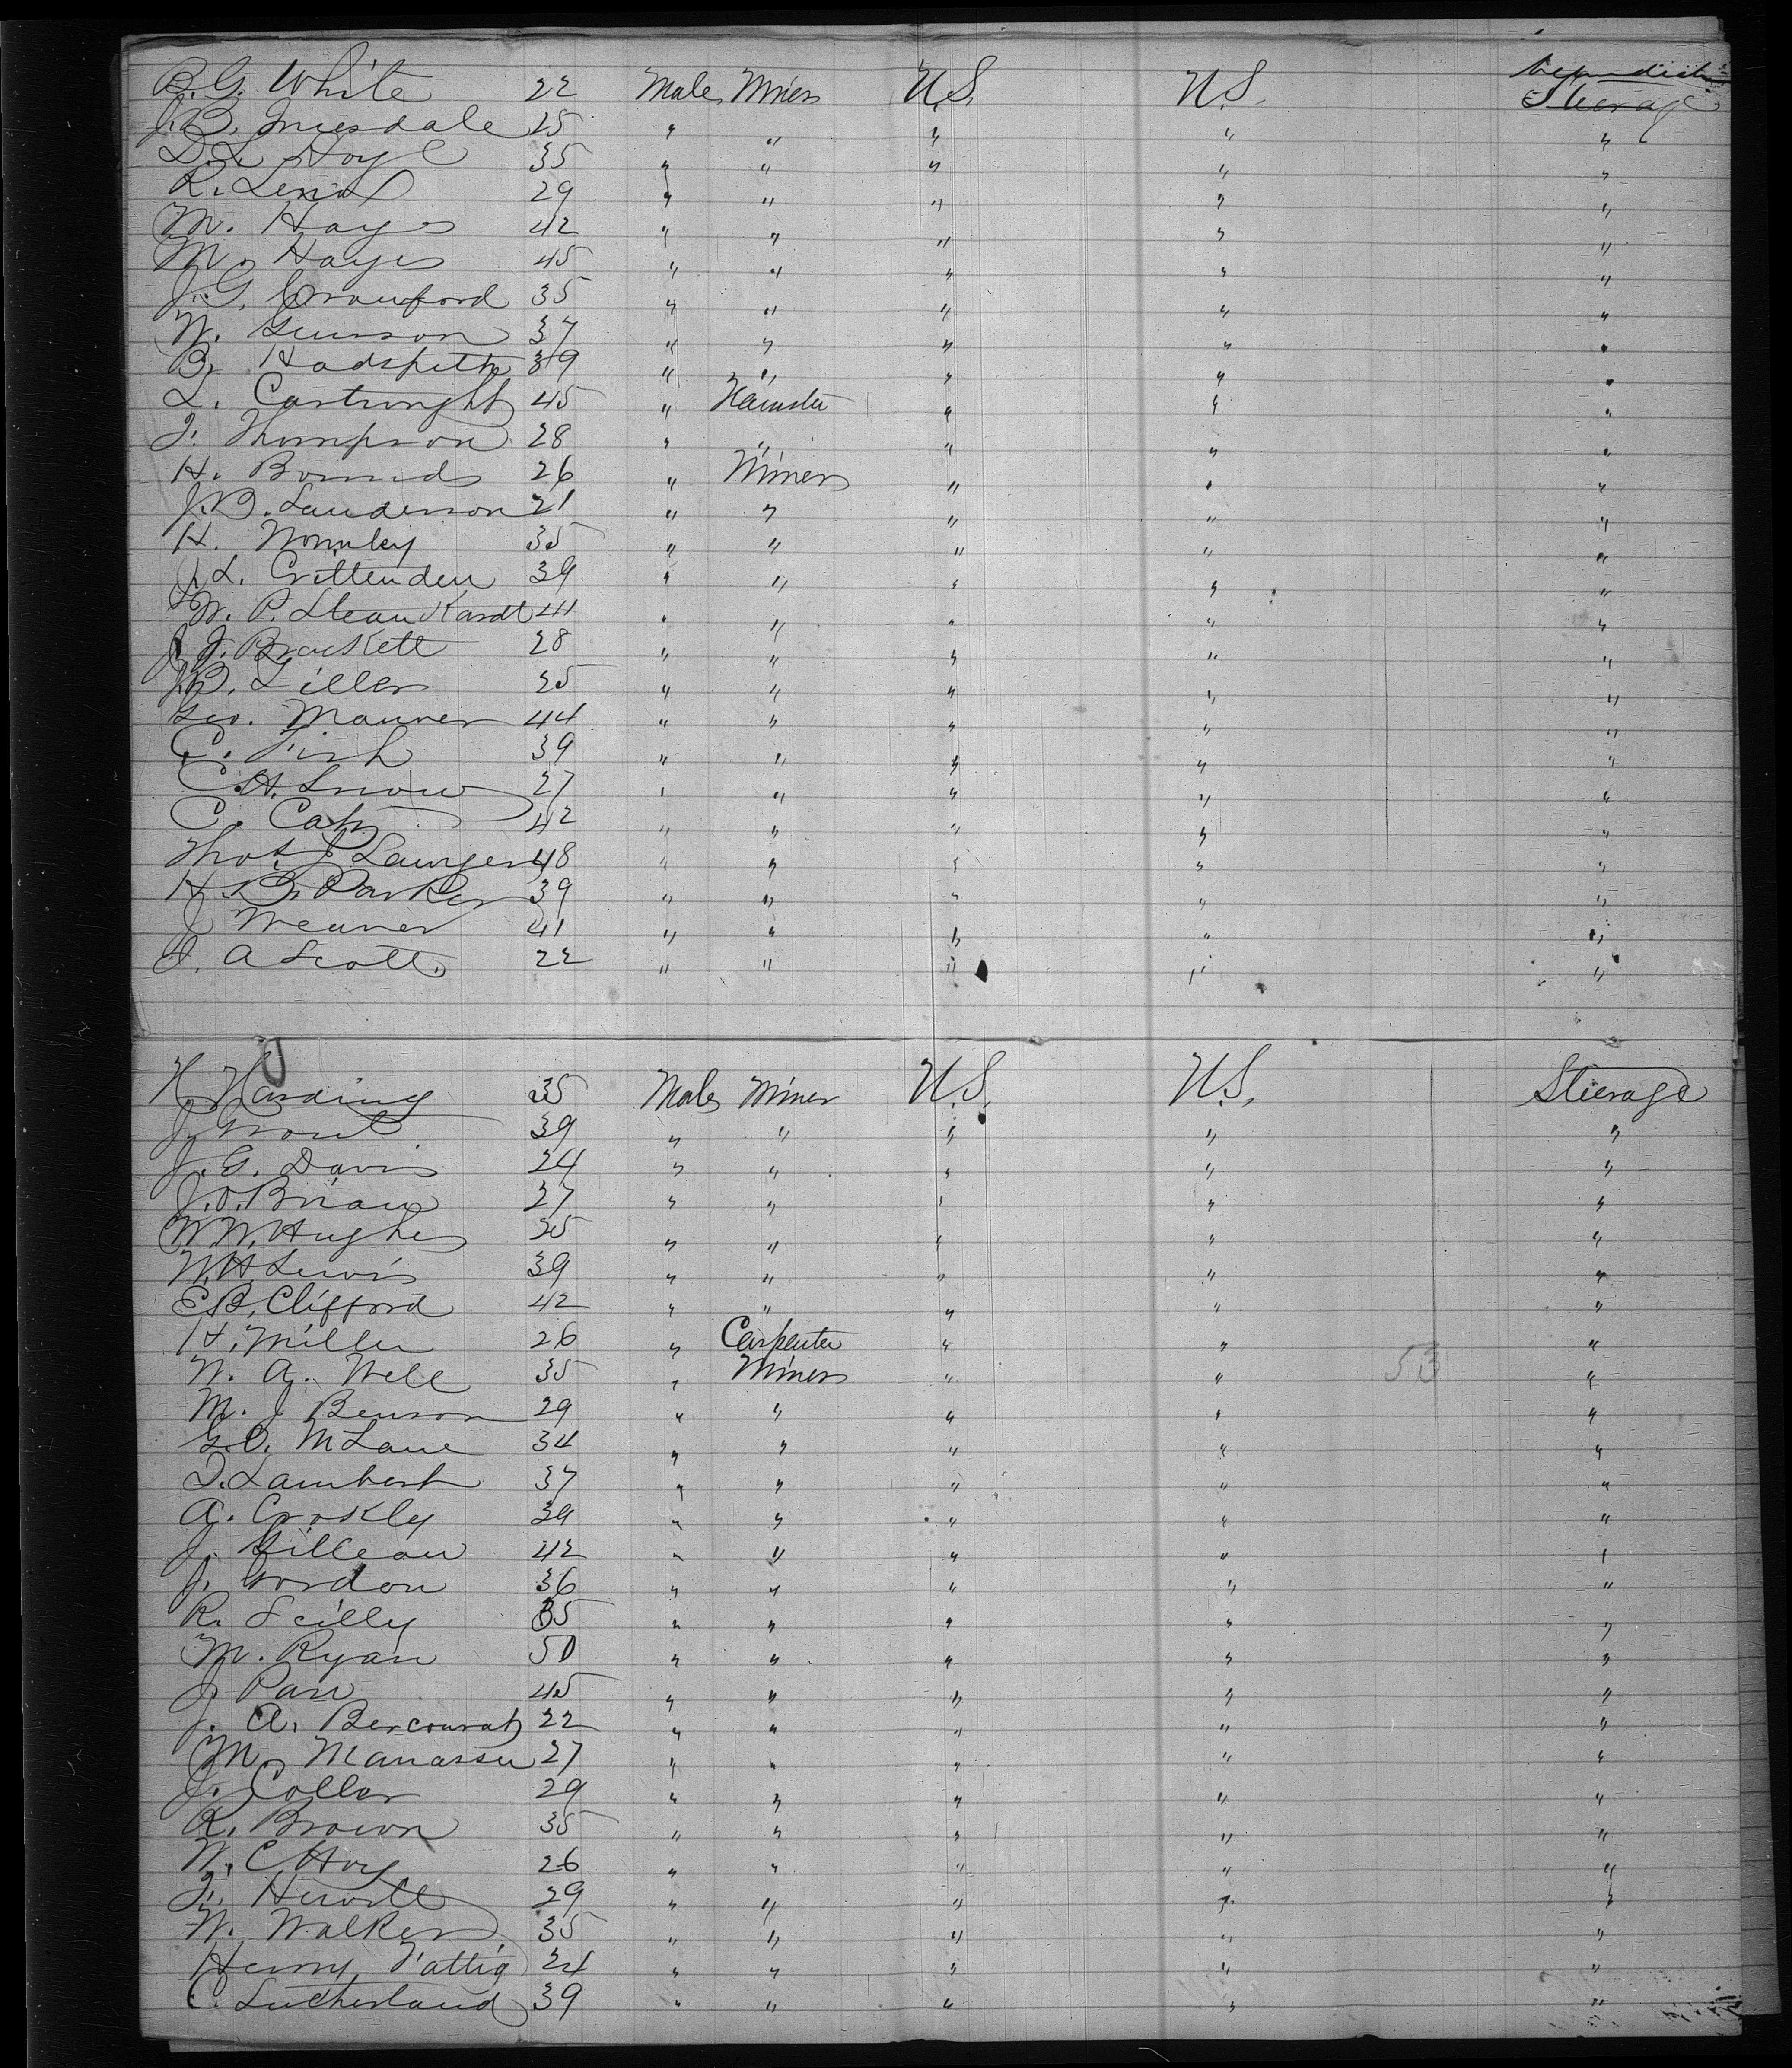 B. G. White 22 Male Miner U.S. U.S. Steerage
J. B. 25 " " " " "
D. L. Hoyl 35 " " " " "
R. 29 " " " " "
M. Hays 42 " " " " "
M. Hayes 45 " " " " "
J. G. Crawford 35 " " " " "
W. 37 " " " " "
B. Hadspeth 39 " " " " "
L. Cartwright 45 " " " "
J. Thompson 28 " " " " "
H. Bounds 26 " Miner " " "
J. B. Sanderson 21 " " " " "
H. Wormley 35 " " " " "
J. L. Crittenden 39 " " " " "
W. P. 41 " " " " "
J. J. Brackett 28 " " " " "
J. B. Liller 25 " " " " "
Geo. Maurer 44 " " " " "
C. Fish 39 " " " " "
C. H. Snow 27 " " " " "
C. 42 " " " " "
Thos. J. Sawyer 48 " " " " "
H. B. Parker 39 " " " " "
J Weaver 41 " " " " "
J. A Scott 22 " " " " "
H. Harding 35 Male Miner U.S. U.S. Steerage
J. 39 " " " " "
J. G. Davis 24 " " " " "
J. O. Brian 27 " " " " "
W. W. Hughes 25 " " " " "
W. H. Lewis 39 " " " " "
E. B. Clifford 42 " " " " "
H. Miller 26 " Carpenter " " "
W. A. Well 35 " Miner " " 53 "
M. J Benson 29 " " " " "
G. O. McLane 34 " " " " "
D. Lambert 37 " " " " "
A. Croskly 39 " " " " "
J. Gillean 42 " " " " "
J. Gordon 36 " " " " "
R. Scilly 35 " " " " "
M. Ryan 50 " " " " "
J. Parr 45 " " " " "
J. A. 22 " " " " "
M. Manasse 27 " " " " "
J. Coller 29 " " " " "
R. Brown 35 " " " " "
W. C Hoy 26 " " " " "
J. 29 " " " " "
W. Walker 35 " " " " "
Henry Fattig 24 " " " " "
C. Sutherland 39 " " " " "